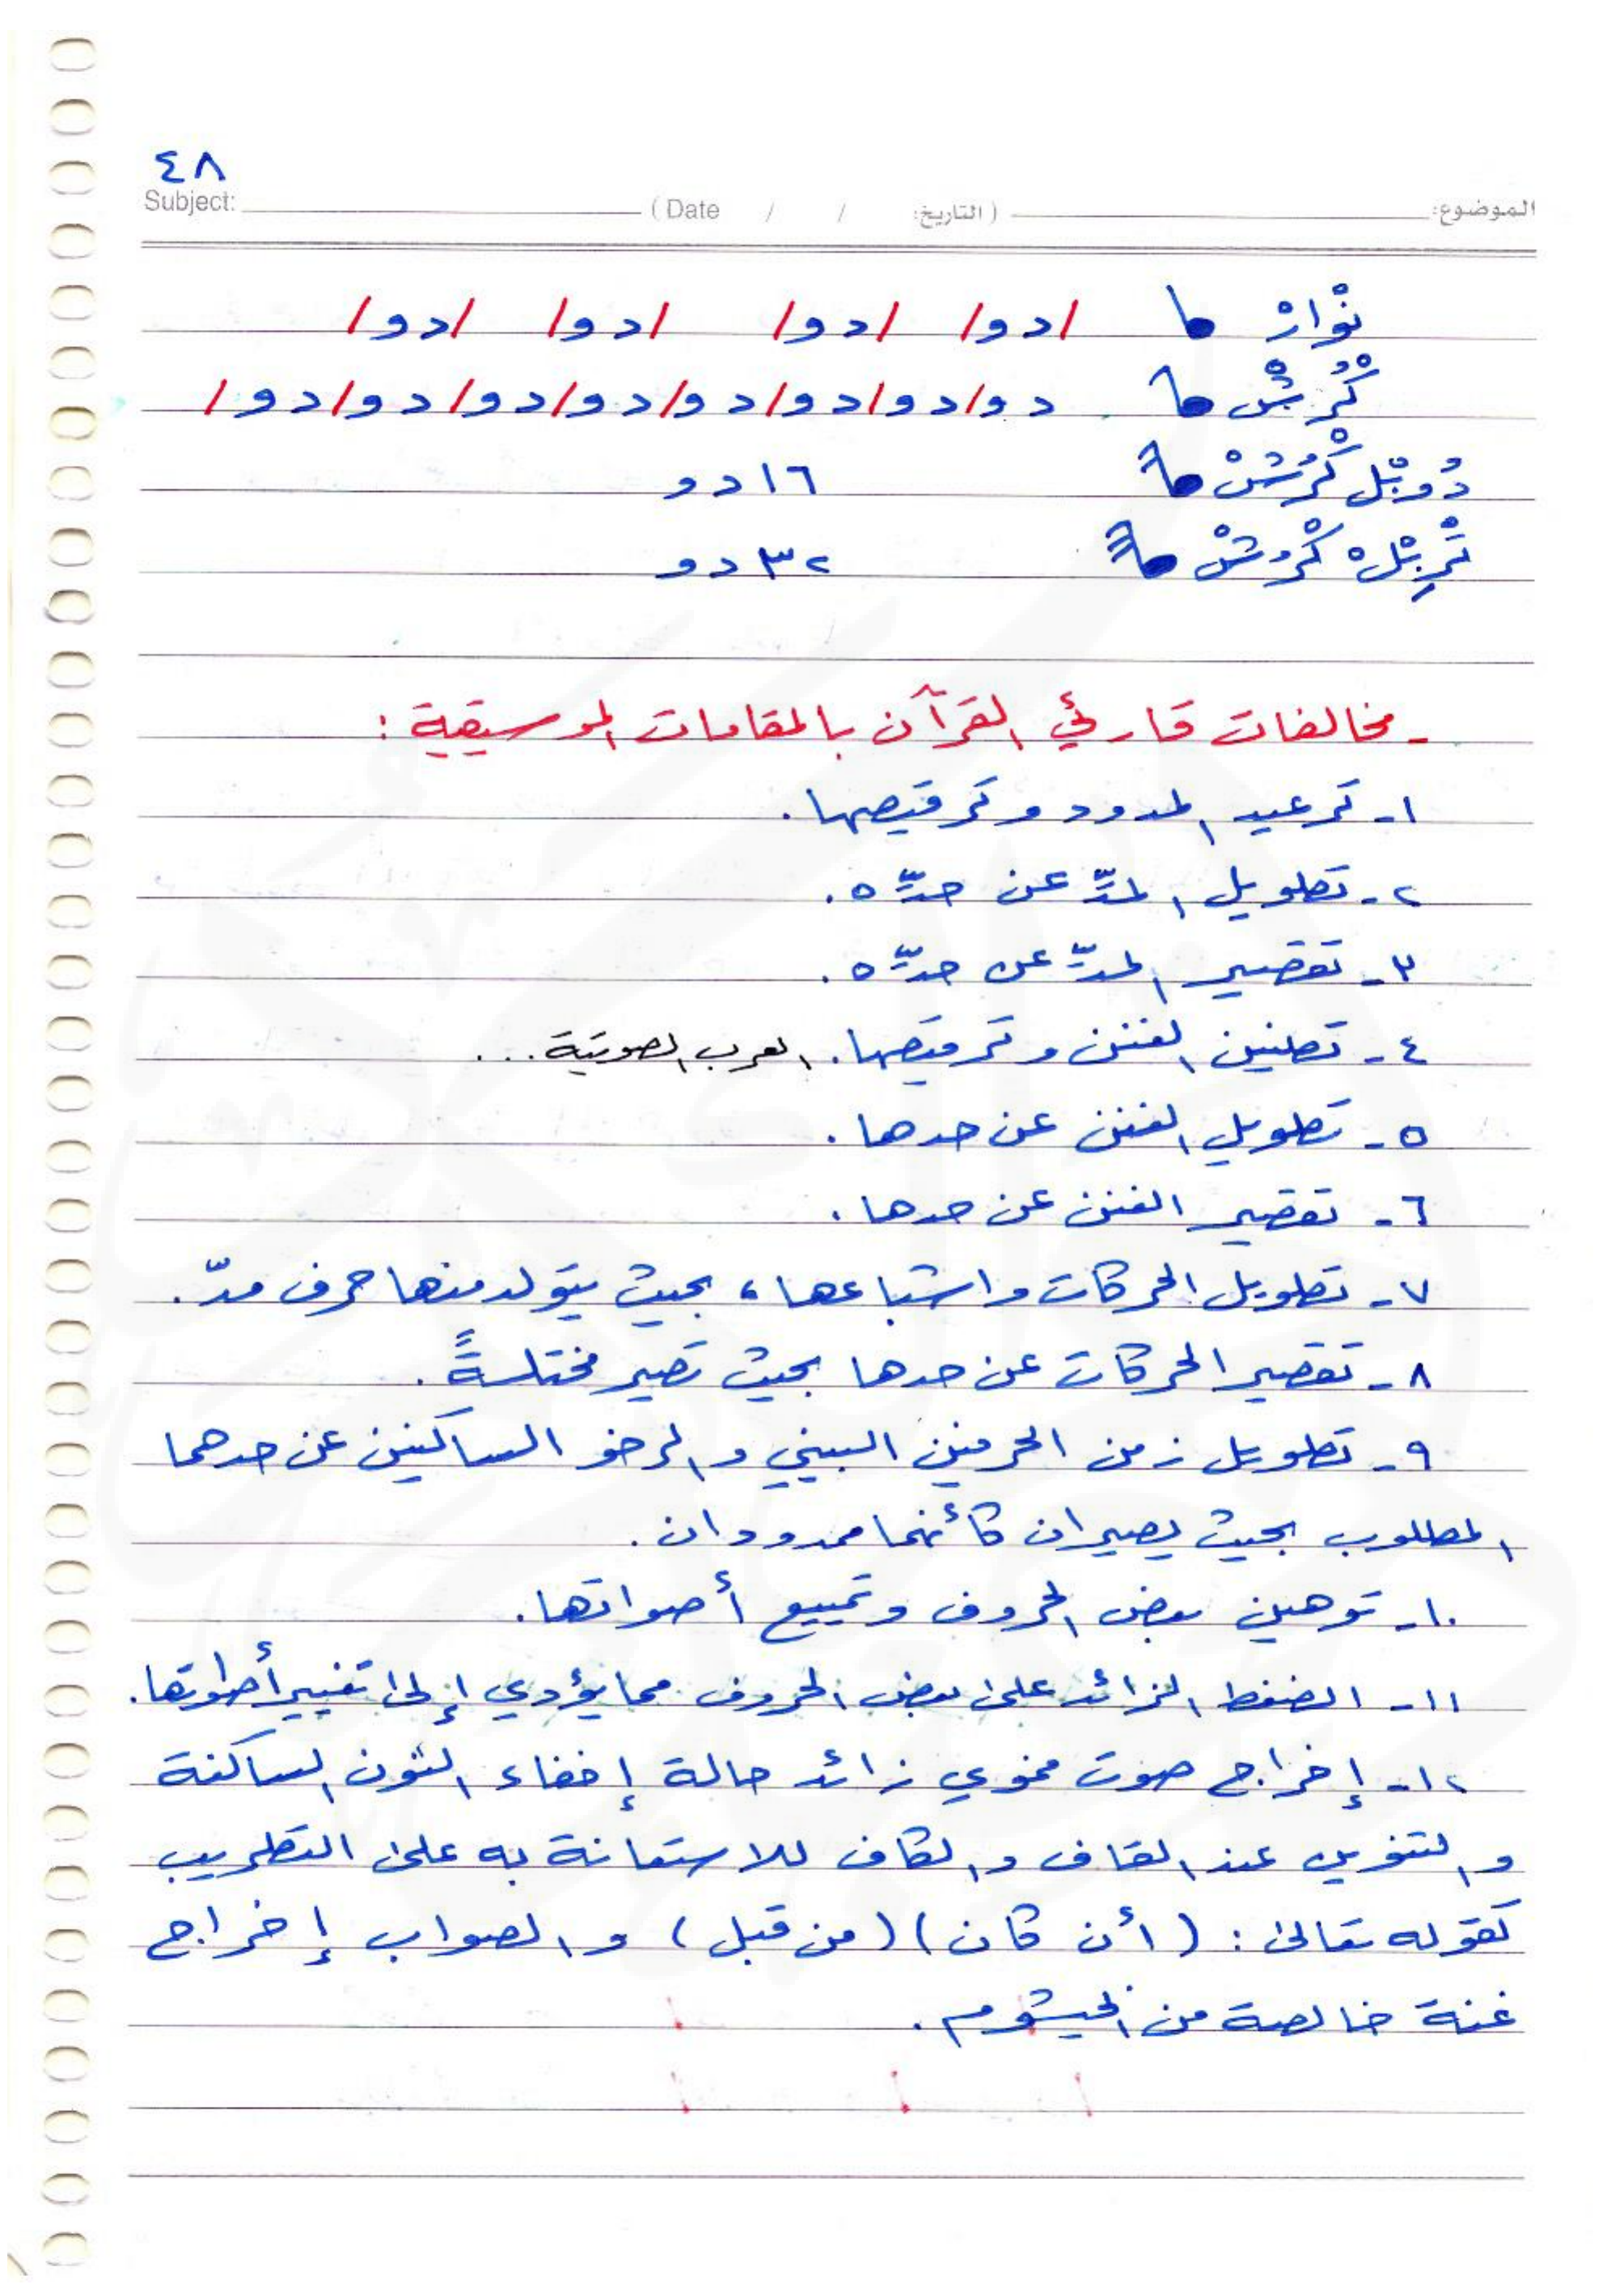 ٤٨
Subject: (Date / / التاريخ) الموضوع:
نْوَارْ ادوا ادوا ادوا ادوا
كْرُشْ دوادوادوادوادوادوادوادوا
دُوبْل كْرُشْ ١٦ دو
تْرِبْلْ كْرُوشْ ٣٢ دو
- مخالفات قارئ القرآن بالمقامات الموسيقية :
١- ترعيد المدود وترقيصها.
٢- تطويل المدِّ عن حدِّه.
٣- تقصير المدِّ عن حدِّه.
٤- تطنين الغنن وترقيصها. العرب الصوتية...
٥- تطويل الغنن عن حدها.
٦- تقصير الغنن عن حدها.
٧- تطويل الحركات واشباعها، بحيث يتولد منها حرف مدّ.
٨- تقصير الحركات عن حدها بحيث تصير مختلسةً.
٩- تطويل زمن الحرفين البيني والرخو الساكنين عن حدهما
المطلوب بحيث يصيران كأنهما ممدودان.
١٠- توهين بعض الحروف وتمييع أصواتها.
١١- الضغط الزائد على بعض الحروف مما يؤدي إلى تغيير أصواتها.
١٢- إخراج صوت فموي زائد حالة إخفاء النون الساكنة
والتنوين عند القاف والكاف للاستعانة به على التطريب
كقوله تعالى: (أن كان) (من قبل) والصواب إخراج
غنة خالصة من الخيشوم.